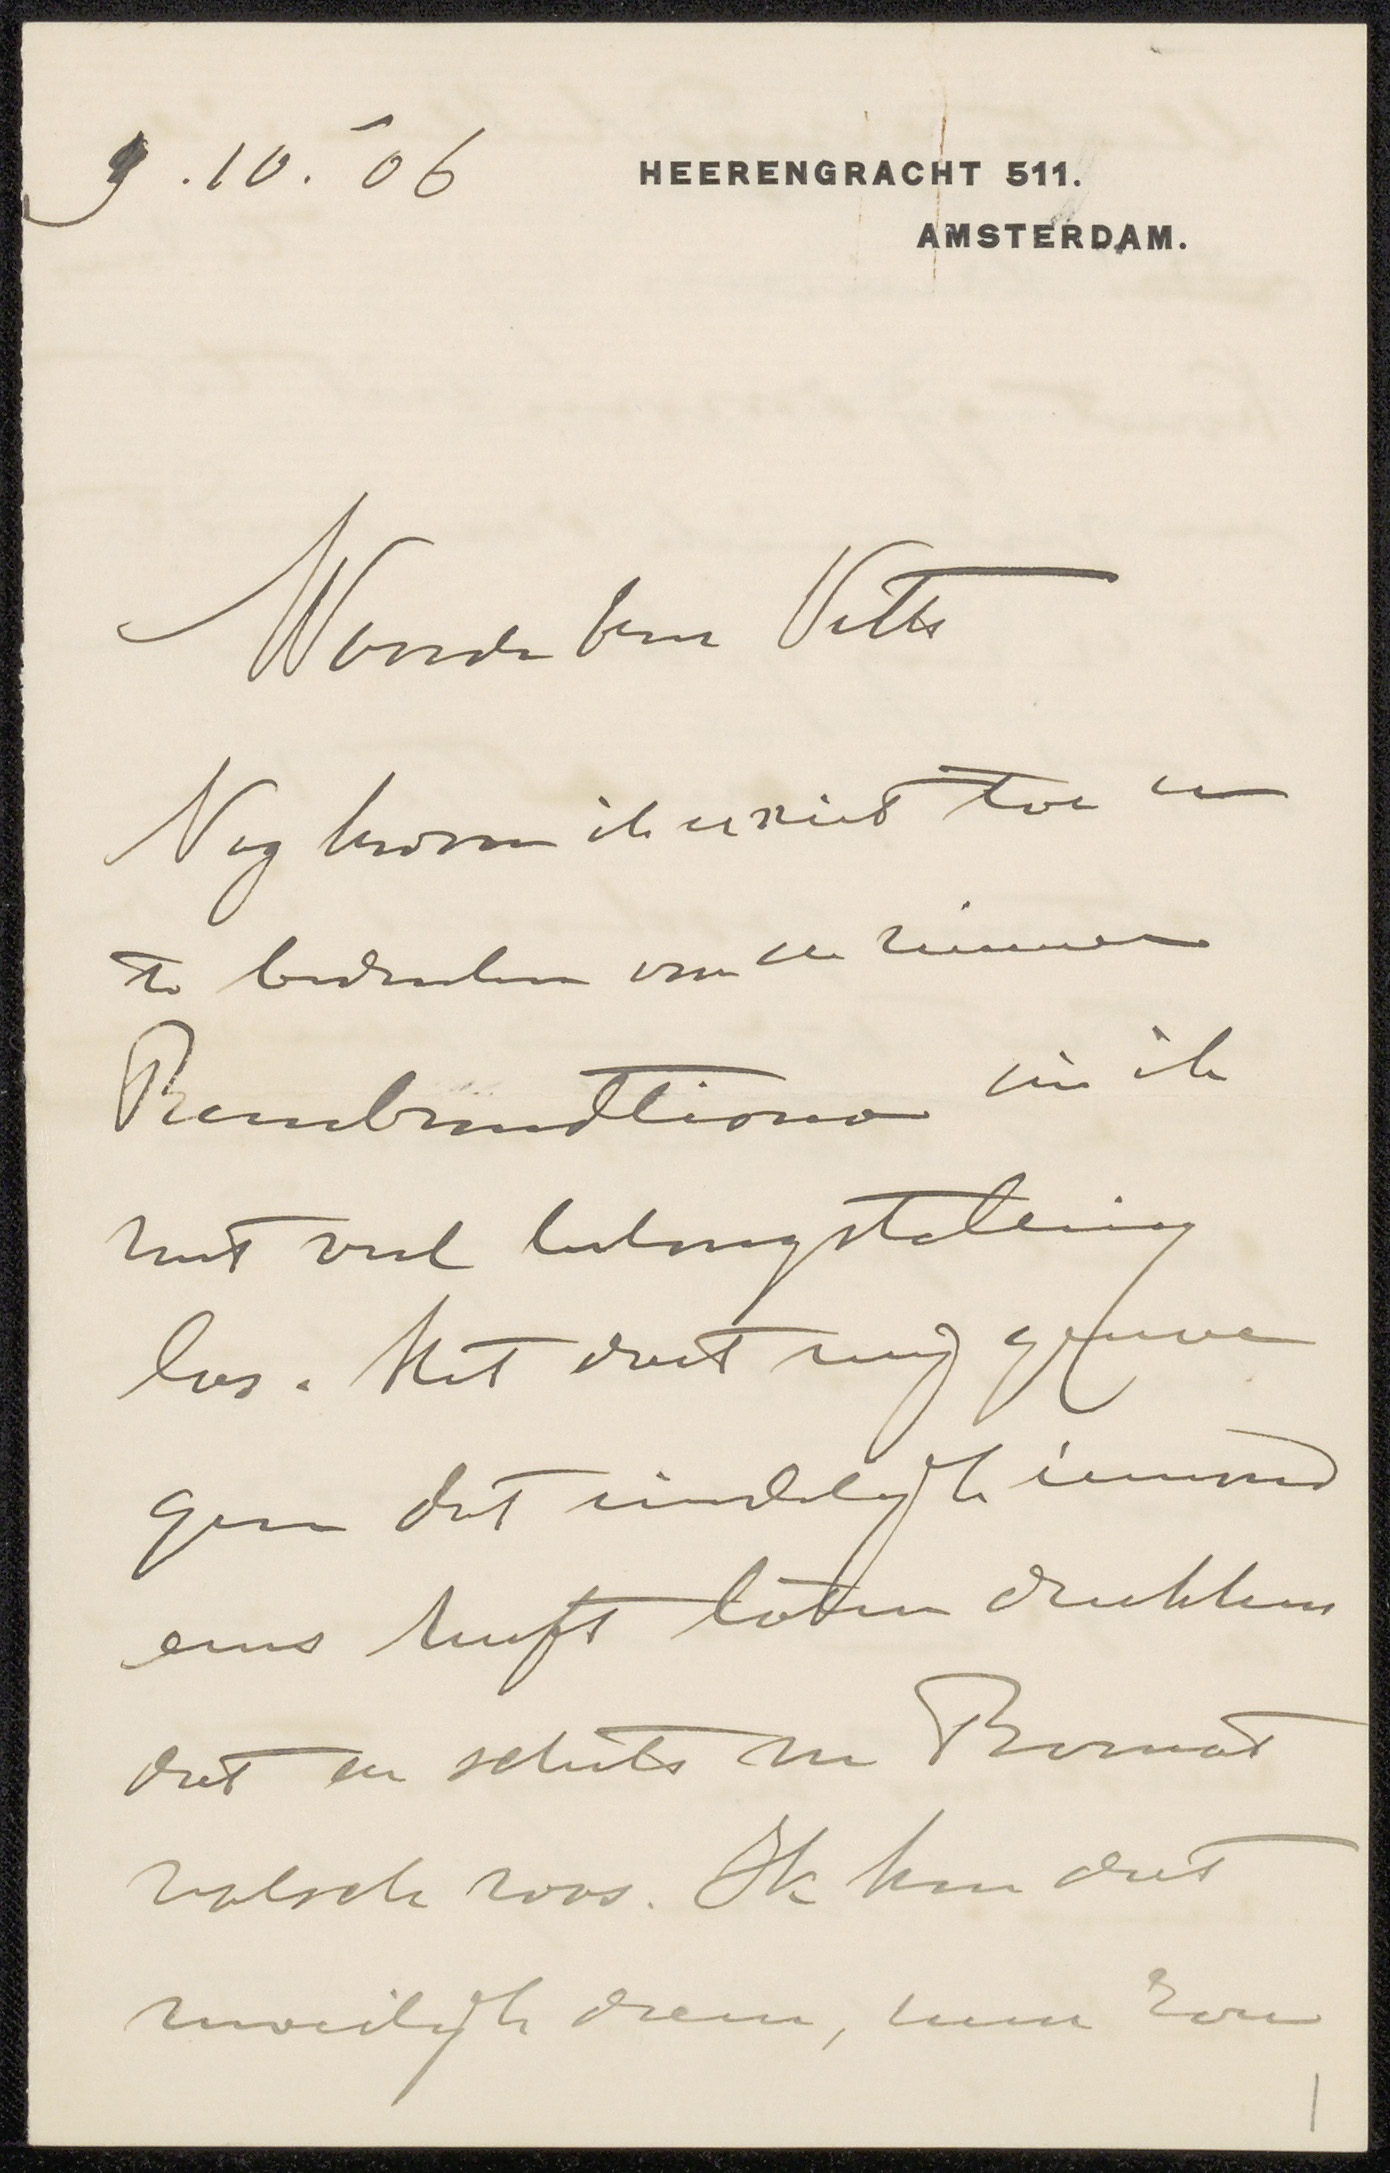 9.10.-06
HEERENGRACHT 511.
AMSTERDAM.
Waarde heer Veth
Nog kwam ik er niet toe u
te bedanken voor de nummers
Rembrandtiana die ik
met veel belangstelling
las. Het doet mij genoe
gen dat eindelijk iemand
eens heeft laten drukken
dat de schets van Bonnat
valsch was. Ik kon dat
moeilijk doen, men zou
1